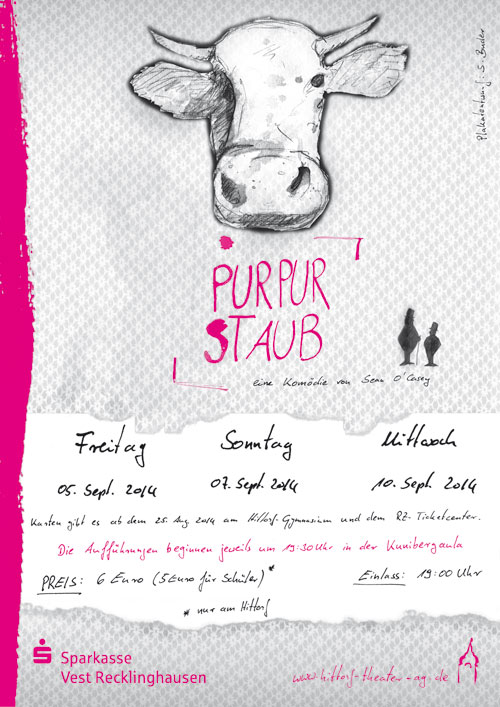 Plakatentwurf: S. Buder
PURPUR
STAUB
eine Komödie von Sean O'Casey
Freitag Sonntag Mittwoch
05. Sept. 2014 07. Sept. 2014 10. Sept. 2014
Karten gibt es ab dem 25. Aug. 2014 am Hittorf-Gymnasium und dem RZ-Ticketcenter.
Die Aufführungen beginnen jeweils um 19:30 Uhr in der Kunibergaula
PREIS: 6 Euro (5 Euro für Schüler)* Einlass: 19:00 Uhr
* nur am Hittorf
Sparkasse
Vest Recklinghausen
www.hittorf-theater-ag.de